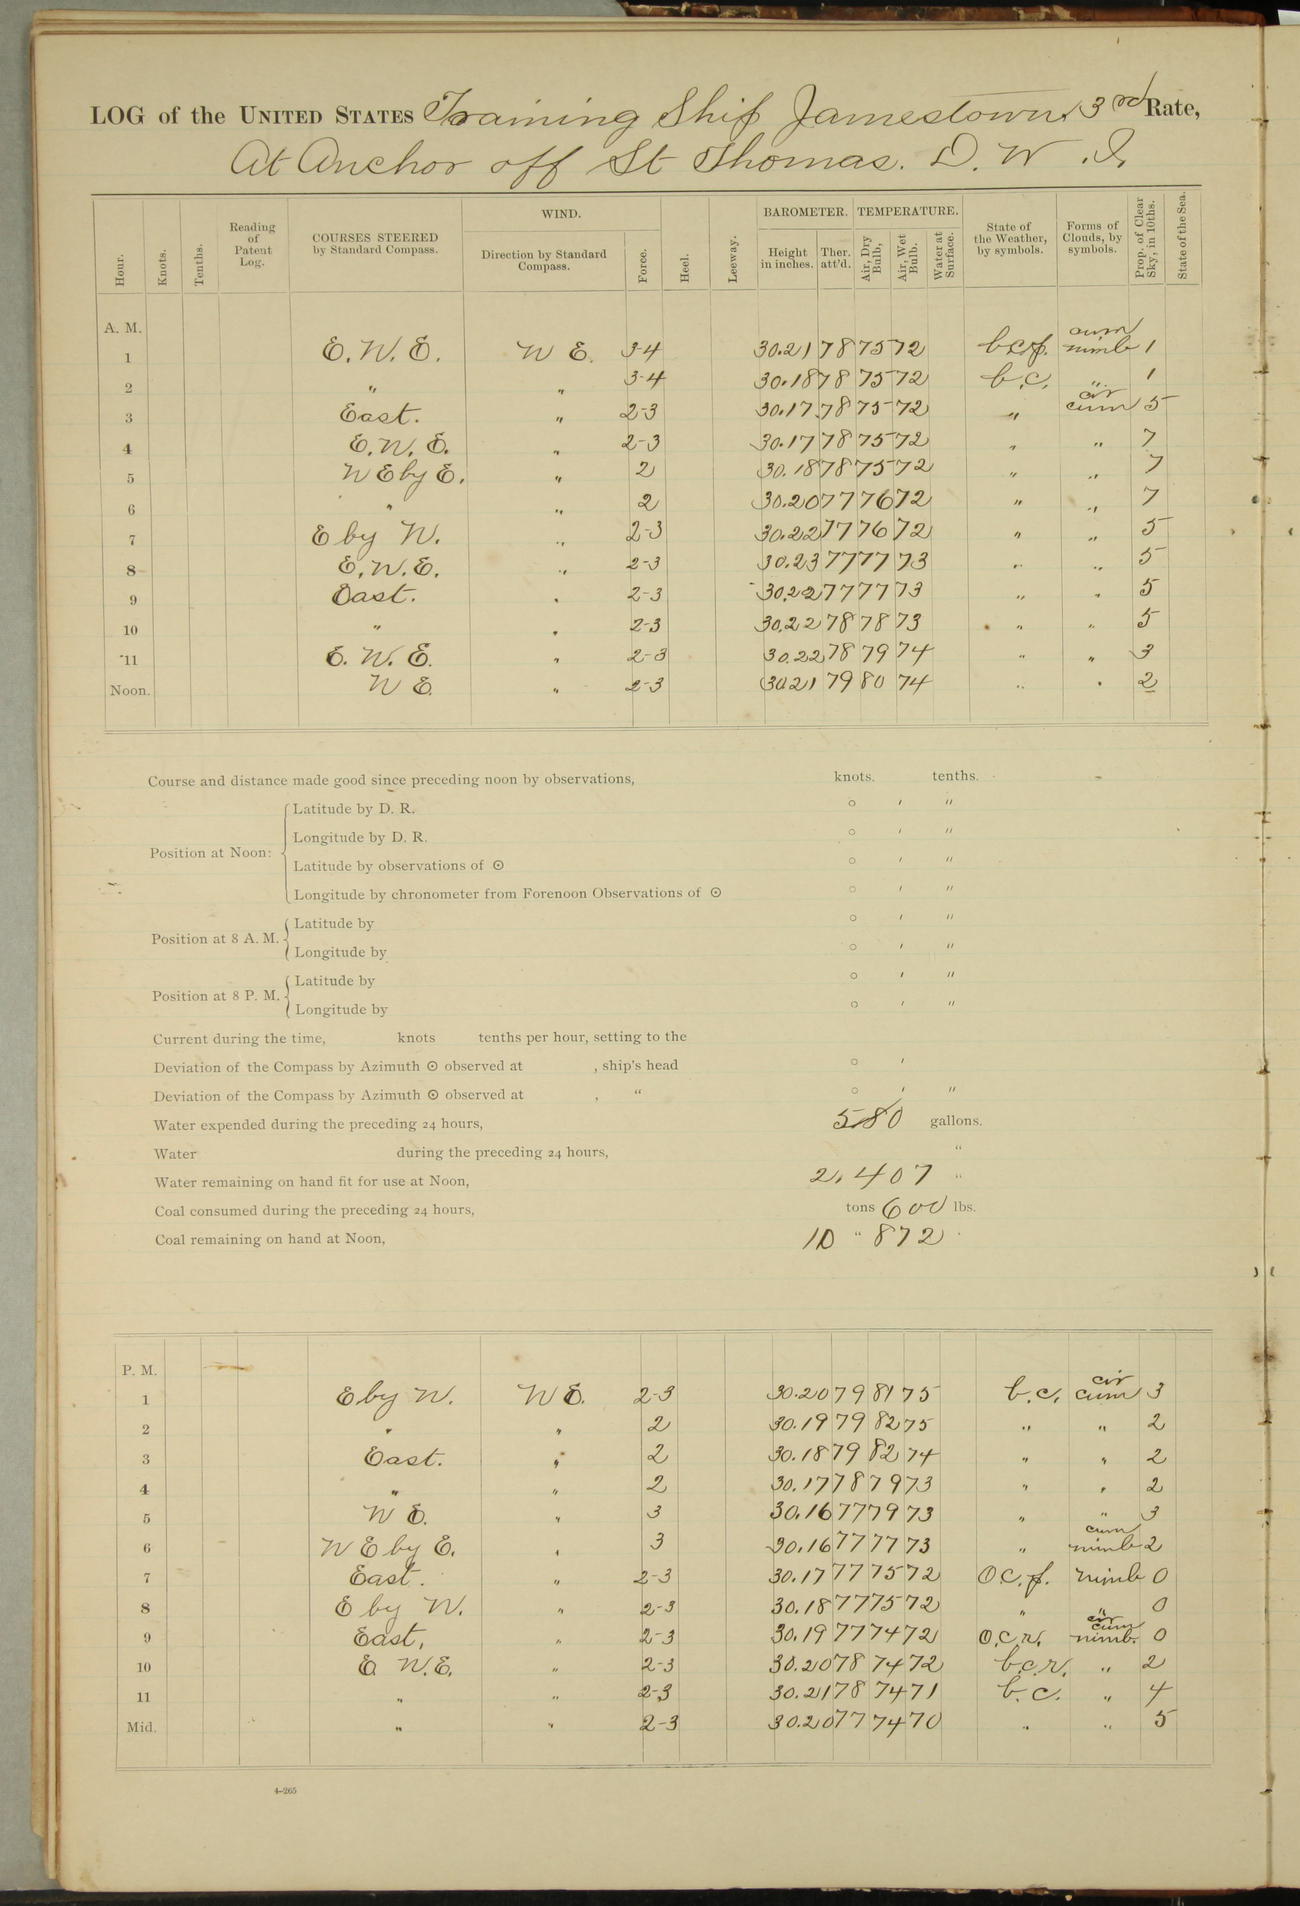 LOG of the UNITED STATES Training Ship Jamestown, 3rd Rate,
At Anchor off St Thomas. D. W. I.
Hour. Knots. Tenths. Reading of Patent Log. COURSES STEERED by Standard Compass. WIND. Direction by Standard Compass. Force. Heel. Leeway. BAROMETER. Height in inches. Ther. att'd. TEMPERATURE. Air, Dry Bulb, Air, Wet Bulb. Water at Surface. State of the Weather, by symbols. Forms of Clouds, by symbols. Prop. of Clear Sky, in 10ths. State of the Sea.
A. M.
1 E. N. E. N E. 3-4 30.21 78 75 72 b.c.p. cum nimb 1
2 " " 3-4 30.18 78 75 72 b.c. " 1
3 East. " 2-3 30.17 78 75 72 " cir cum 5
4 E. N. E. " 2-3 30.17 78 75 72 " " 7
5 N E by E. " 2 30.18 78 75 72 " " 7
6 " " 2 30.20 77 76 72 " " 7
7 E by N. " 2-3 30.22 77 76 72 " " 5
8 E. N. E. " 2-3 30.23 77 77 73 " " 5
9 East. " 2-3 30.22 77 77 73 " " 5
10 " " 2-3 30.22 78 78 73 " " 5
11 E. N. E. " 2-3 30.22 78 79 74 " " 3
Noon. N E " 2-3 30.21 79 80 74 " " 2
Course and distance made good since preceding noon by observations, knots. tenths.
Position at Noon:
Latitude by D. R. ° ′ ″
Longitude by D. R. ° ′ ″
Latitude by observations of ☉ ° ′ ″
Longitude by chronometer from Forenoon Observations of ☉ ° ′ ″
Position at 8 A. M.
Latitude by ° ′ ″
Longitude by ° ′ ″
Position at 8 P. M.
Latitude by ° ′ ″
Longitude by ° ′ ″
Current during the time, knots tenths per hour, setting to the
Deviation of the Compass by Azimuth ☉ observed at , ship's head ° ′
Deviation of the Compass by Azimuth ☉ observed at , “ ° ′ ″
Water expended during the preceding 24 hours, 580 gallons.
Water during the preceding 24 hours, “
Water remaining on hand fit for use at Noon, 2,407 “
Coal consumed during the preceding 24 hours, tons 600 lbs.
Coal remaining on hand at Noon, 10 “ 872
P. M.
1 E by N. N E. 2-3 30.20 79 81 75 b.c. cir cum 3
2 " " 2 30.19 79 82 75 " " 2
3 East. " 2 30.18 79 82 74 " " 2
4 " " 2 30.17 78 79 73 " " 2
5 N E. " 3 30.16 77 79 73 " " 3
6 N E by E. " 3 30.16 77 77 73 " cum nimb 2
7 East. " 2-3 30.17 77 75 72 O.C.p. nimb 0
8 E by N. " 2-3 30.18 77 75 72 " " 0
9 East, " 2-3 30.19 77 74 72 O.C.R. cir cum nimb. 0
10 E N. E. " 2-3 30.20 78 74 72 b.c.r. " 2
11 " " 2-3 30.21 78 74 71 b.c. " 4
Mid. " " 2-3 30.20 77 74 70 " " 5
4-265